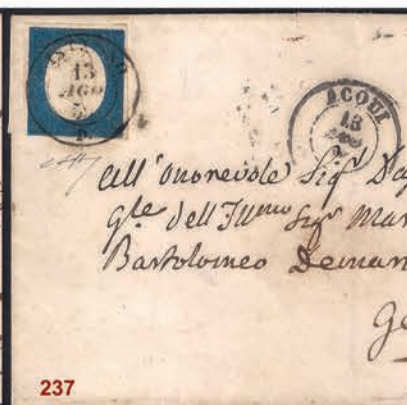 13
AGO
ACQUI
13
AGO
All'onorevole Sig.r
Gle dell'Ill.mo Sig.r Mar
Bartolomeo Deman
Ge
237